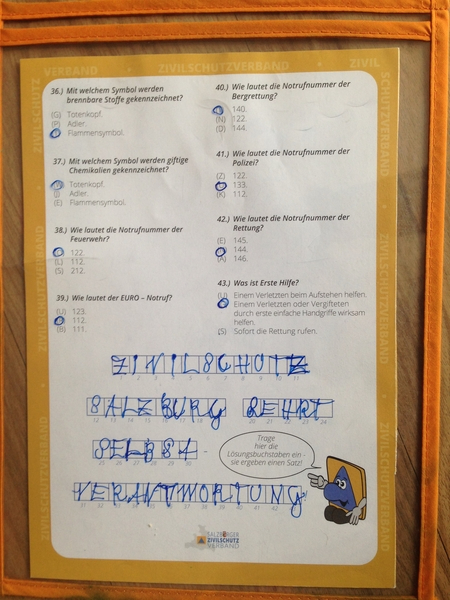 VERBAND · ZIVILSCHUTZVERBAND · ZIVIL
ZIVILSCHUTZ
ZIVILSCHUTZVERBAND
SCHUTZVERBAND
ZIVILSCHUTZVERBAND
36.) Mit welchem Symbol werden
brennbare Stoffe gekennzeichnet?
(G) Totenkopf.
(P) Adler.
Flammensymbol.
37.) Mit welchem Symbol werden giftige
Chemikalien gekennzeichnet?
Totenkopf.
(J) Adler.
(E) Flammensymbol.
38.) Wie lautet die Notrufnummer der
Feuerwehr?
122.
(L) 112.
(S) 212.
39.) Wie lautet der EURO – Notruf?
(U) 123.
112.
(B) 111.
40.) Wie lautet die Notrufnummer der
Bergrettung?
140.
(N) 122.
(D) 144.
41.) Wie lautet die Notrufnummer der
Polizei?
(Z) 122.
133.
(K) 112.
42.) Wie lautet die Notrufnummer der
Rettung?
(E) 145.
144.
(A) 146.
43.) Was ist Erste Hilfe?
(U) Einem Verletzten beim Aufstehen helfen.
Einem Verletzten oder Vergifteten
durch erste einfache Handgriffe wirksam
helfen.
(S) Sofort die Rettung rufen.
ZIVILSCHUTZ
SALZBURG
SELBST-
VERANTWORTUNG
Trage
hier die
Lösungsbuchstaben ein -
sie ergeben einen Satz!
SALZBURGER
ZIVILSCHUTZ
VERBAND